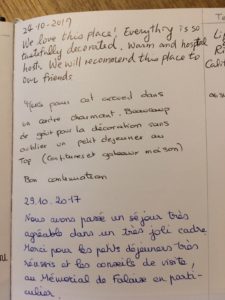 24-10-2017
We love this place! Everything is so
tastefully decorated. Warm and
host. We will recommend this place to
our friends.
Merci pour cet accueil dans
un cadre charmant. Beaucoup
de goût pour la décoration sans
oublier un petit dejeuner au
Top (confitures et gateaux maison)
Bon continuation
29.10.2017
Nous avons passé un séjour très
agréable dans un très joli cadre
Merci pour les petits déjeuners très
réussis et les conseils de visite,
au Mémorial de Falaise en parti-
culier.